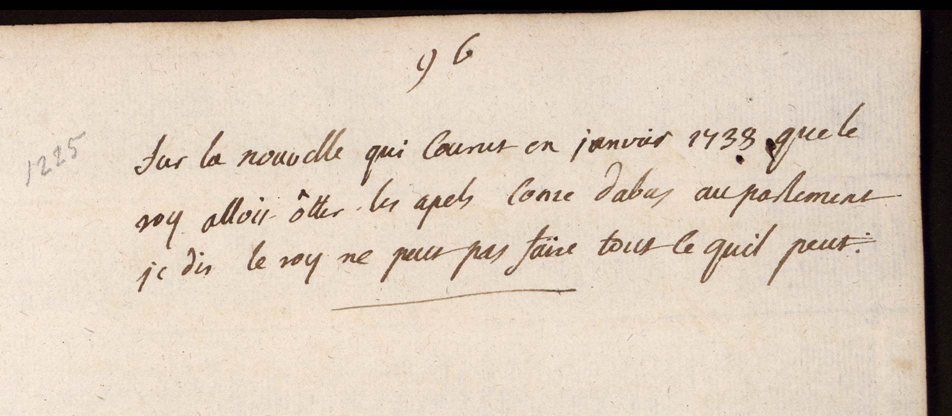 96
1225
Sur la nouvelle qui courut en janvier 1738 que le
roy alloit ôtter les apels come dabus au parlement
je dis le roy ne peut pas faire tout ce quil peut.